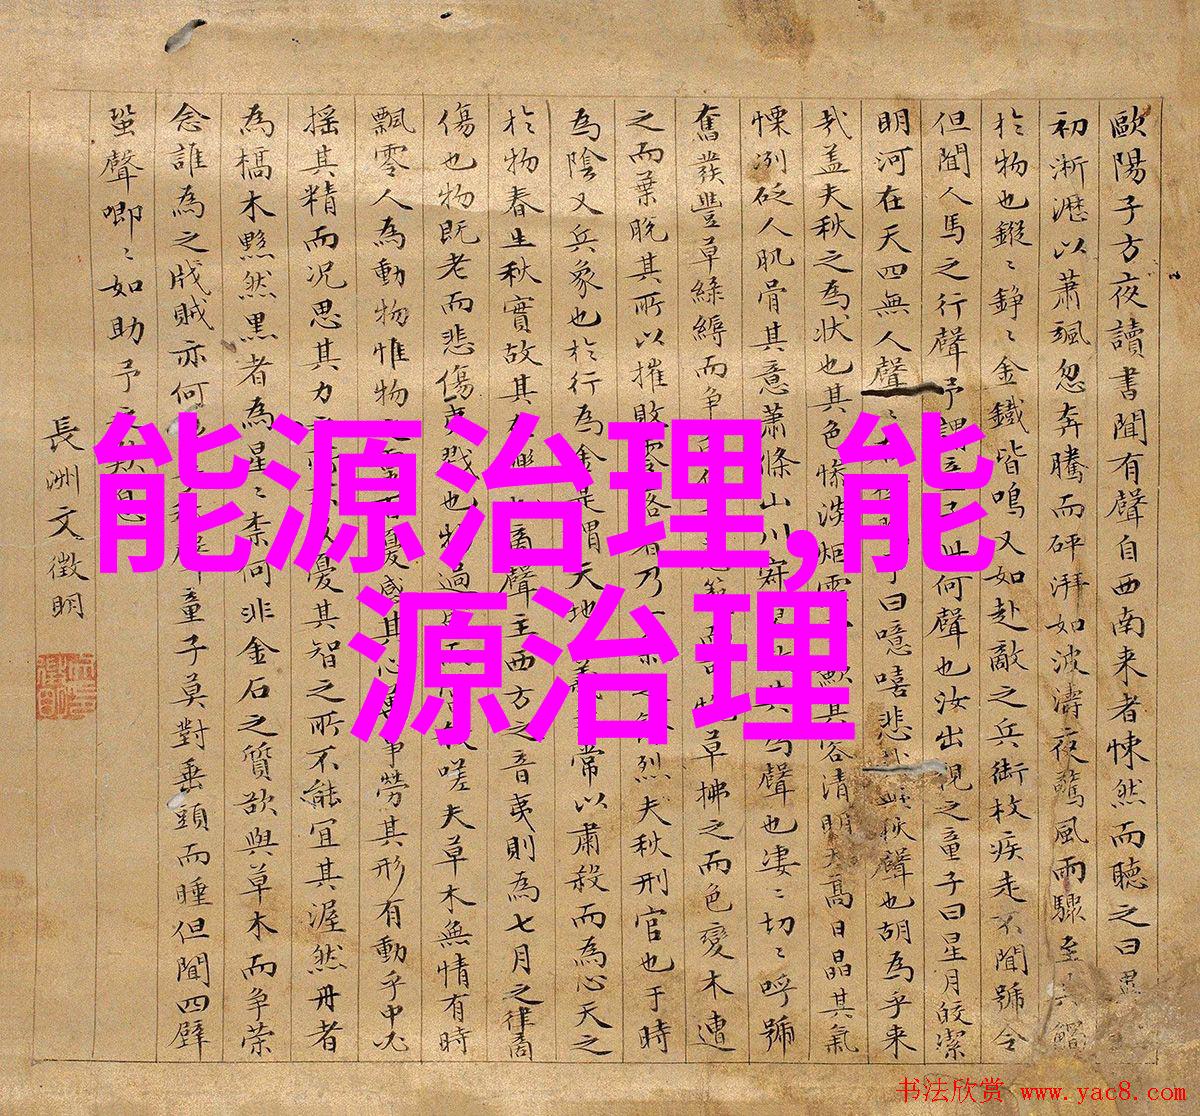 歐陽子方夜讀書聞有聲自西南来者悚然而聽之曰異
初淅瀝以蕭颯忽奔騰而砰湃如波濤夜驚風雨驟至其觸
於物也鏦〻錚〻金鐵皆鳴又如赴敵之兵銜枚疾走不聞號令
但聞人馬之行聲予謂童子此何聲也汝出視之童子曰星月皎潔
明河在天四無人聲予曰噫嘻悲哉此秋聲也胡為乎来
哉盖夫秋之為状也其色慘淡烟雲其容清明天高日晶其氣
慄冽砭人肌骨其意蕭條山川寂其為聲也凄〻切〻呼號
奮發豐草緑縟而争草拂之而色變木遭
之而葉脱其所以摧敗零落者乃烈夫秋刑官也于時
為陰又兵象也於行為金是謂天地義常以肅殺而為心天之
於物春生秋實故其樂也商聲主西方之音夷則為七月之律商
傷也物既老而悲傷夷戮也物過嗟夫草木無情有時
飄零人為動物惟物憂感其心萬事勞其形有動乎中必
摇其精而况思其力憂其智之所不能宜其渥然丹者
為槁木黟然黒者為星〻柰何非金石之質欲與草木而争荣
念誰為之戕賊亦何童子莫對垂頭而睡但聞四壁
蛩聲唧〻如助予之歎息
長洲文徵明
能源治理,能
源治理
书法欣赏 www.yac8.com